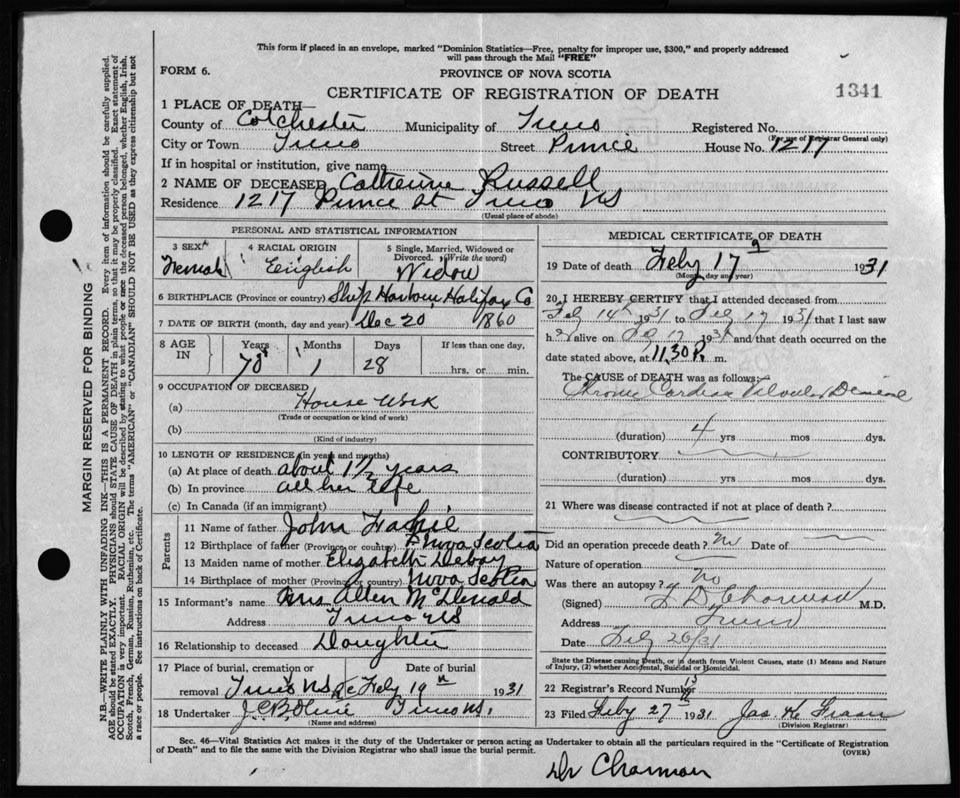 This form if placed in an envelope, marked "Dominion Statistics—Free, penalty for improper use, $300," and properly addressed
will pass through the Mail "FREE"
FORM 6.
PROVINCE OF NOVA SCOTIA
1341
CERTIFICATE OF REGISTRATION OF DEATH
1 PLACE OF DEATH—
County of Colchester Municipality of Truro Registered No.
(For use of Registrar General only)
City or Town Truro Street Prince House No. 1217
If in hospital or institution, give name
2 NAME OF DECEASED Catherine Russell
Residence 1217 Prince St Truro NS
(Usual place of abode)
PERSONAL AND STATISTICAL INFORMATION
3 SEX Female
4 RACIAL ORIGIN English
5 Single, Married, Widowed or Divorced. (Write the word) Widow
6 BIRTHPLACE (Province or country) Ship Harbour, Halifax Co
7 DATE OF BIRTH (month, day and year) Dec 20 1860
8 AGE IN Years 70 Months 1 Days 28 If less than one day, hrs. or min.
9 OCCUPATION OF DECEASED
(a) House Work
(Trade or occupation or kind of work)
(b)
(Kind of industry)
10 LENGTH OF RESIDENCE (in years and months)
(a) At place of death about 1½ years
(b) In province all her life
(c) In Canada (if an immigrant)
Parents
11 Name of father John
12 Birthplace of father (Province or country) Nova Scotia
13 Maiden name of mother Elizabeth DeBay
14 Birthplace of mother (Province or country) Nova Scotia
15 Informant's name Mrs Allen McDonald
Address Truro NS
16 Relationship to deceased Daughter
17 Place of burial, cremation or removal Truro NS Date of burial Feby 19th 1931
18 Undertaker J.C.B. Truro NS.
(Name and address)
MEDICAL CERTIFICATE OF DEATH
19 Date of death Feby 17 1931
(Month, day and year)
20 I HEREBY CERTIFY that I attended deceased from
Feb 14th 1931 to Feb 17 1931 that I last saw
her alive on Feb 17 1931 and that death occurred on the
date stated above, at 11,30 P. m.
The CAUSE OF DEATH was as follows:—
Chronic Cardiac Valvular Disease
(duration) 4 yrs mos dys.
CONTRIBUTORY
(duration) yrs mos dys.
21 Where was disease contracted if not at place of death?
Did an operation precede death? No Date of
Nature of operation
Was there an autopsy? No
(Signed) Charman M.D.
Address Truro
Date Feb 26/31
State the Disease causing Death, or in death from Violent Causes, state (1) Means and Nature
of Injury, (2) whether Accidental, Suicidal or Homicidal.
22 Registrar's Record Number
23 Filed Feby 27 1931 Jas
(Division Registrar)
Sec. 46—Vital Statistics Act makes it the duty of the Undertaker or person acting as Undertaker to obtain all the particulars required in the "Certificate of Registration
of Death" and to file the same with the Division Registrar who shall issue the burial permit.
(OVER)
Dr Charman
MARGIN RESERVED FOR BINDING
N.B.—WRITE PLAINLY WITH UNFADING INK—THIS IS A PERMANENT RECORD. Every item of information should be carefully supplied.
AGE should be stated EXACTLY. PHYSICIANS should STATE CAUSE OF DEATH in plain terms, so that it may be properly classified. Exact statement of
OCCUPATION is very important. RACIAL ORIGIN will be described by stating to what people or race the deceased person belonged, whether English, Irish,
Scotch, French, German, Russian, Ruthenian, etc. The terms "AMERICAN" or "CANADIAN" SHOULD NOT BE USED as they express citizenship but not
a race or people. See instructions on back of Certificate.